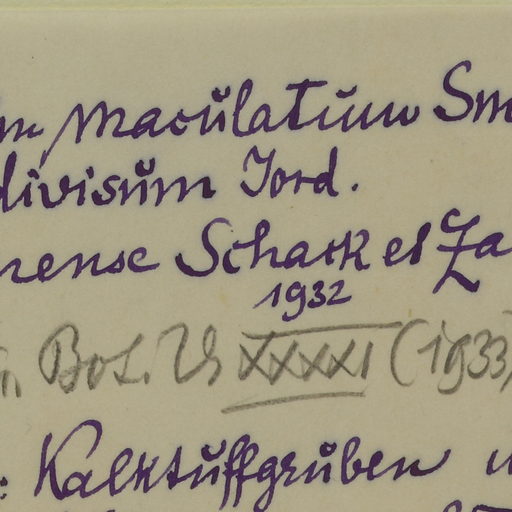 maculatum Sm
divisum Jord.
nense Schack et Za
1932
Bot. V XXXXI (1933)
: Kalktuffgruben